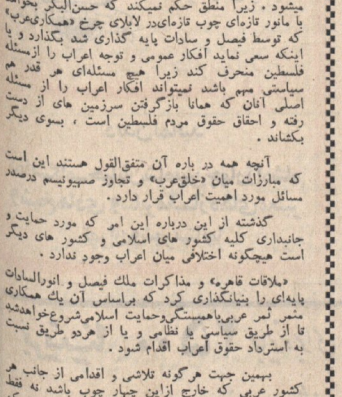 میشود . زیرا منطق حکم نمیکند که حسن‌البکر بخواهد
با مانور تازه‌ای چوب تازه‌ای‌در لابلای چرخ «همکاری‌عرب»
که توسط فیصل و سادات پایه گذاری شد بگذارد و یا
اینکه سعی نماید افکار عمومی و توجه اعراب را ازمسئله
فلسطین منحرف کند زیرا هیچ مسئله‌ای هر قدر هم
سیاستی مهم باشد نمیتواند افکار اعراب را از مسئله
اصلی آنان که همانا بازگرفتن سرزمین های از دست
رفته و احقاق حقوق مردم فلسطین است ، بسوی دیگر
بکشاند .
آنچه همه در باره آن متفق‌القول هستند این است
که مبارزات میان «خلق‌عرب» و تجاوز صهیونیسم درصدر
مسائل مورد اهمیت اعراب قرار دارد .
گذشته از این درباره این امر که مورد حمایت و
جانبداری کلیه کشور های اسلامی و کشور های دیگر
است هیچگونه اختلافی میان اعراب وجود ندارد .
«ملاقات قاهره» و مذاکرات ملك فیصل و انورالسادات
پایه‌ای را بنیانگذاری کرد که براساس آن یك همکاری
مثمر ثمر عربی‌باهمبستگی‌وحمایت اسلامی‌شروع‌خواهدشد
تا از طریق سیاسی یا نظامی و یا از هردو طریق نسبت
به استرداد حقوق اعراب اقدام شود .
بهمین جهت هرگونه تلاشی و اقدامی از جانب هر
کشور عربی که خارج ازاین چهار چوب باشد نه فقط